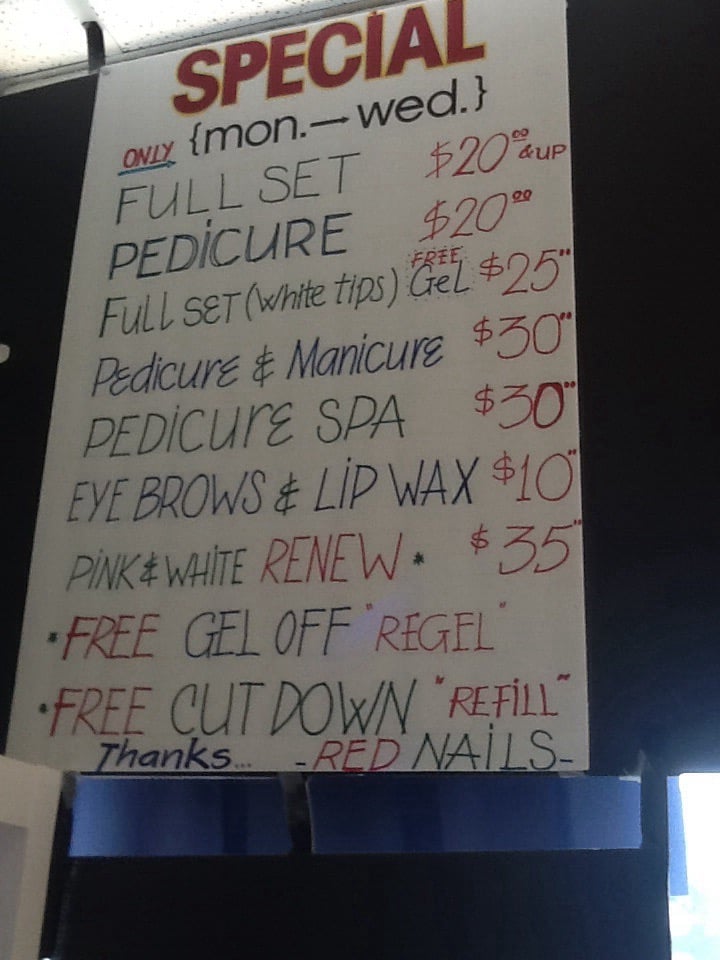 SPECIAL
ONLY {mon.→wed.}
FULL SET $20.00 & UP
PEDICURE $20.00
FULL SET (white tips) FREE GeL $25"
Pedicure & Manicure $30"
PEDICURE SPA $30"
EYE BROWS & LIP WAX $10"
PINK & WHITE RENEW * $35"
*FREE GEL OFF "REGEL"
*FREE CUT DOWN "REFILL"
Thanks... -RED NAILS-